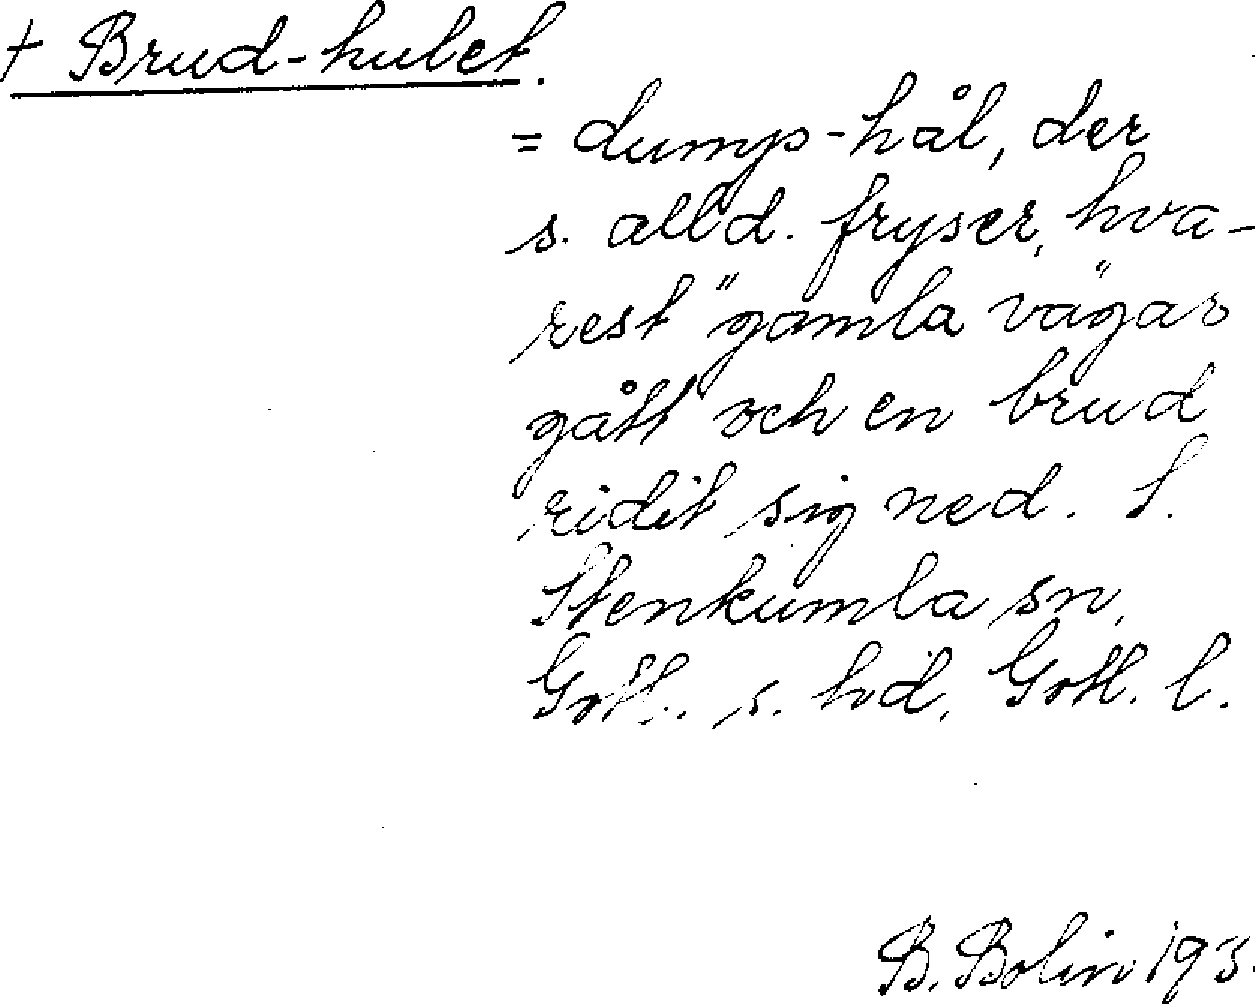 + Brud-hulet.
= dump-hål, der
s. alld. fryser, hva-
rest "gamla vägar
gått" och en brud
ridit sig ned. S.
Stenkumla sn,
Gotl. s. hd, Gotl. l.
B. Bolin 193